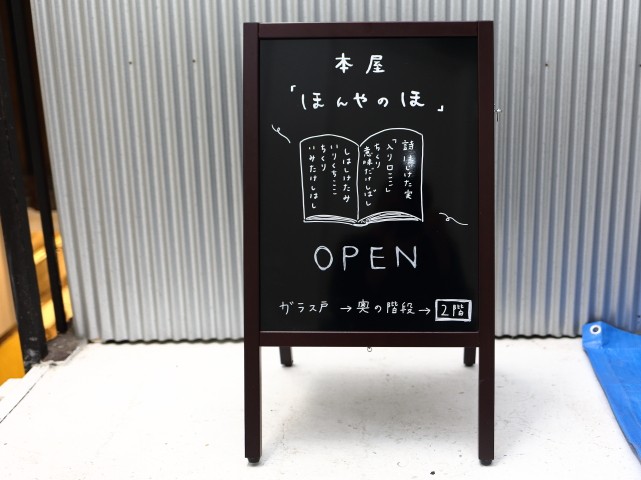 本屋
「ほんやのほ」
詩はじけた実
「入り口ここ」
ちくり
意味だけしばし
しはしけたみ
いりくちここ
ちくり
いみたけしはし
OPEN
ガラス戸→奥の階段→2階